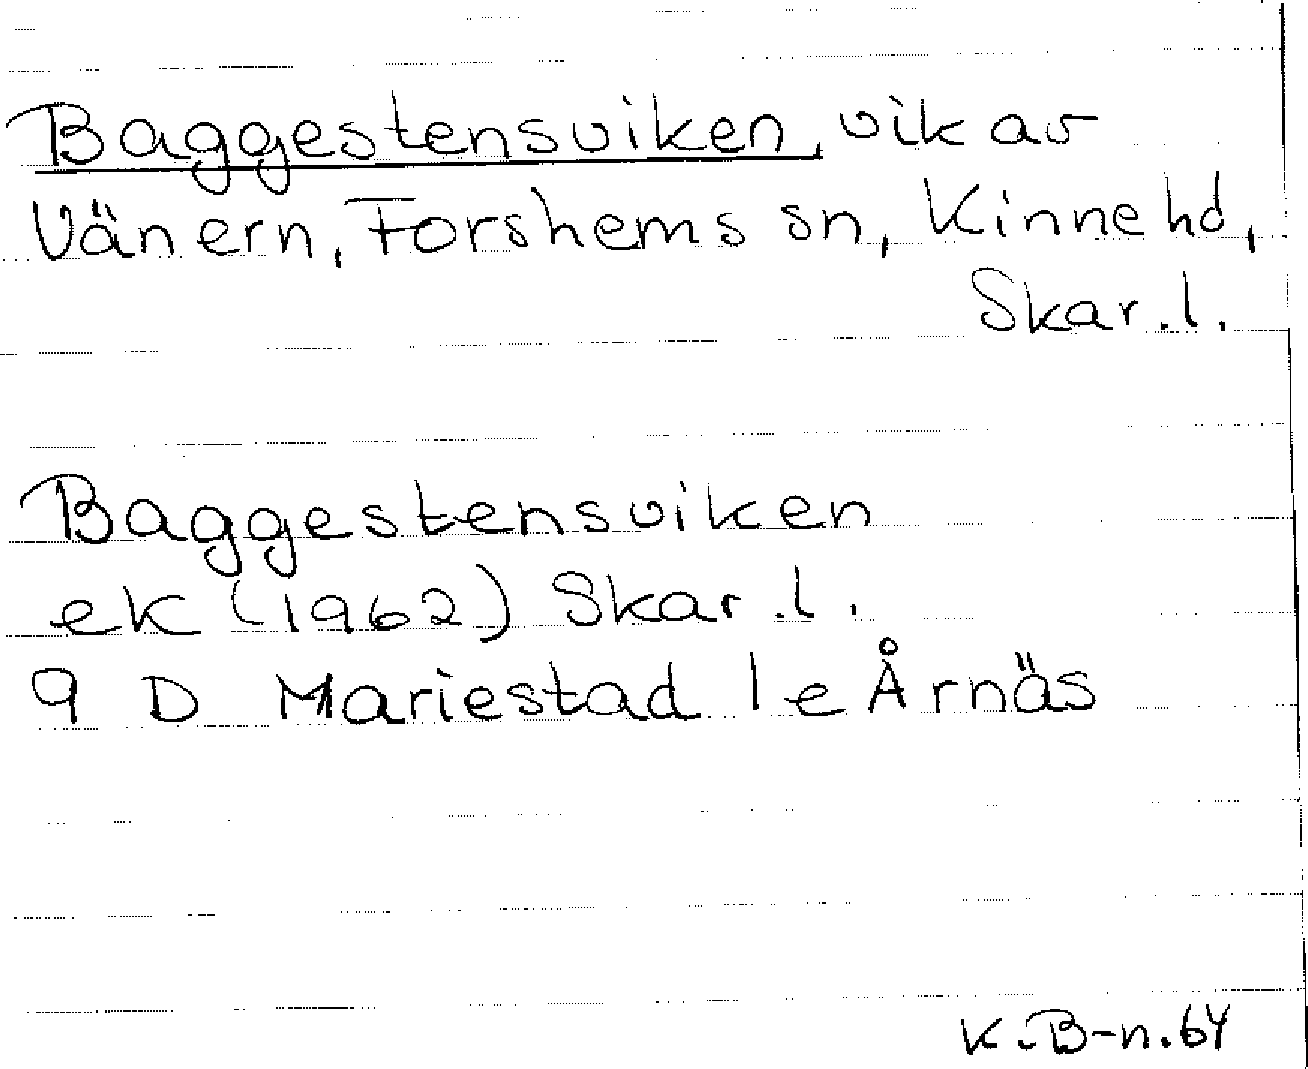 Baggestensviken, vik av
Vänern, Forshems sn, Kinne hd,
Skar. l.
Baggestensviken
ek (1962) Skar. l.
9 D Mariestad 1e Årnäs
K. B-n. 64